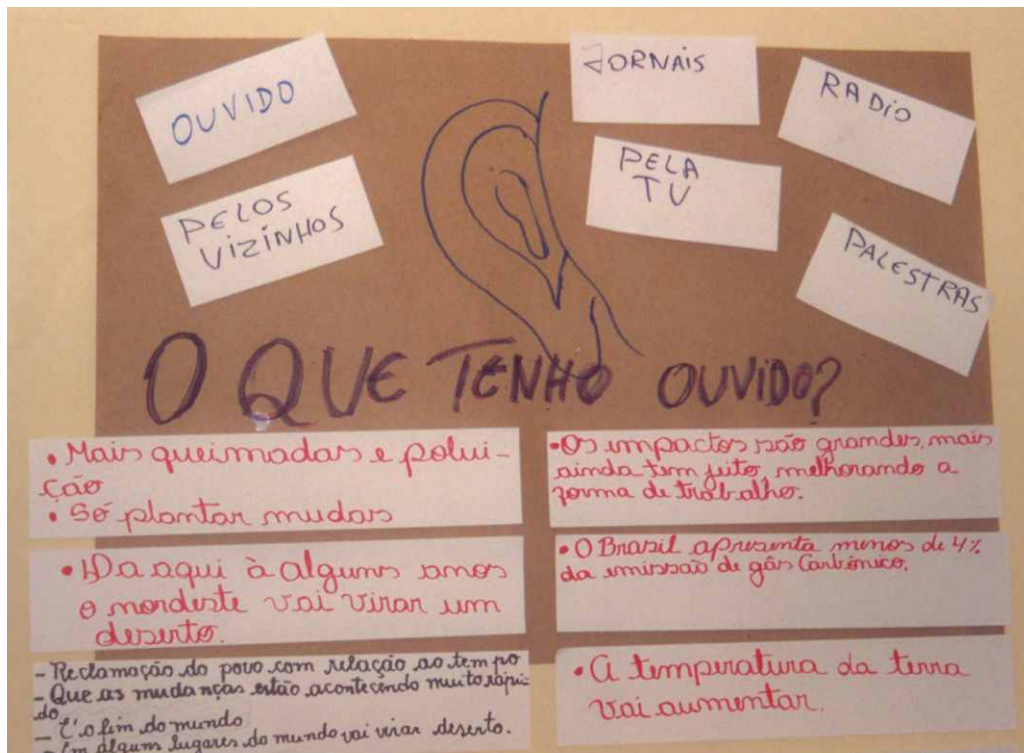 OUVIDO
PELOS
VIZINHOS
JORNAIS
PELA
TV
RADIO
PALESTRAS
O QUE TENHO OUVIDO?
• Mais queimadas e polui-
ção
• Só plantar mudas
• Da aqui à alguns anos
o nordeste vai virar um
deserto.
- Reclamação do povo com relação ao tempo
- Que as mudanças estão acontecendo muito rápi-
do
- É o fim do mundo
- Em alguns lugares do mundo vai virar deserto.
• Os impactos são grandes, mais
ainda tem jeito, melhorando a
forma de trabalho.
• O Brasil apresenta menos de 4%
da emissão de gás Carbônico.
• A temperatura da terra
vai aumentar.